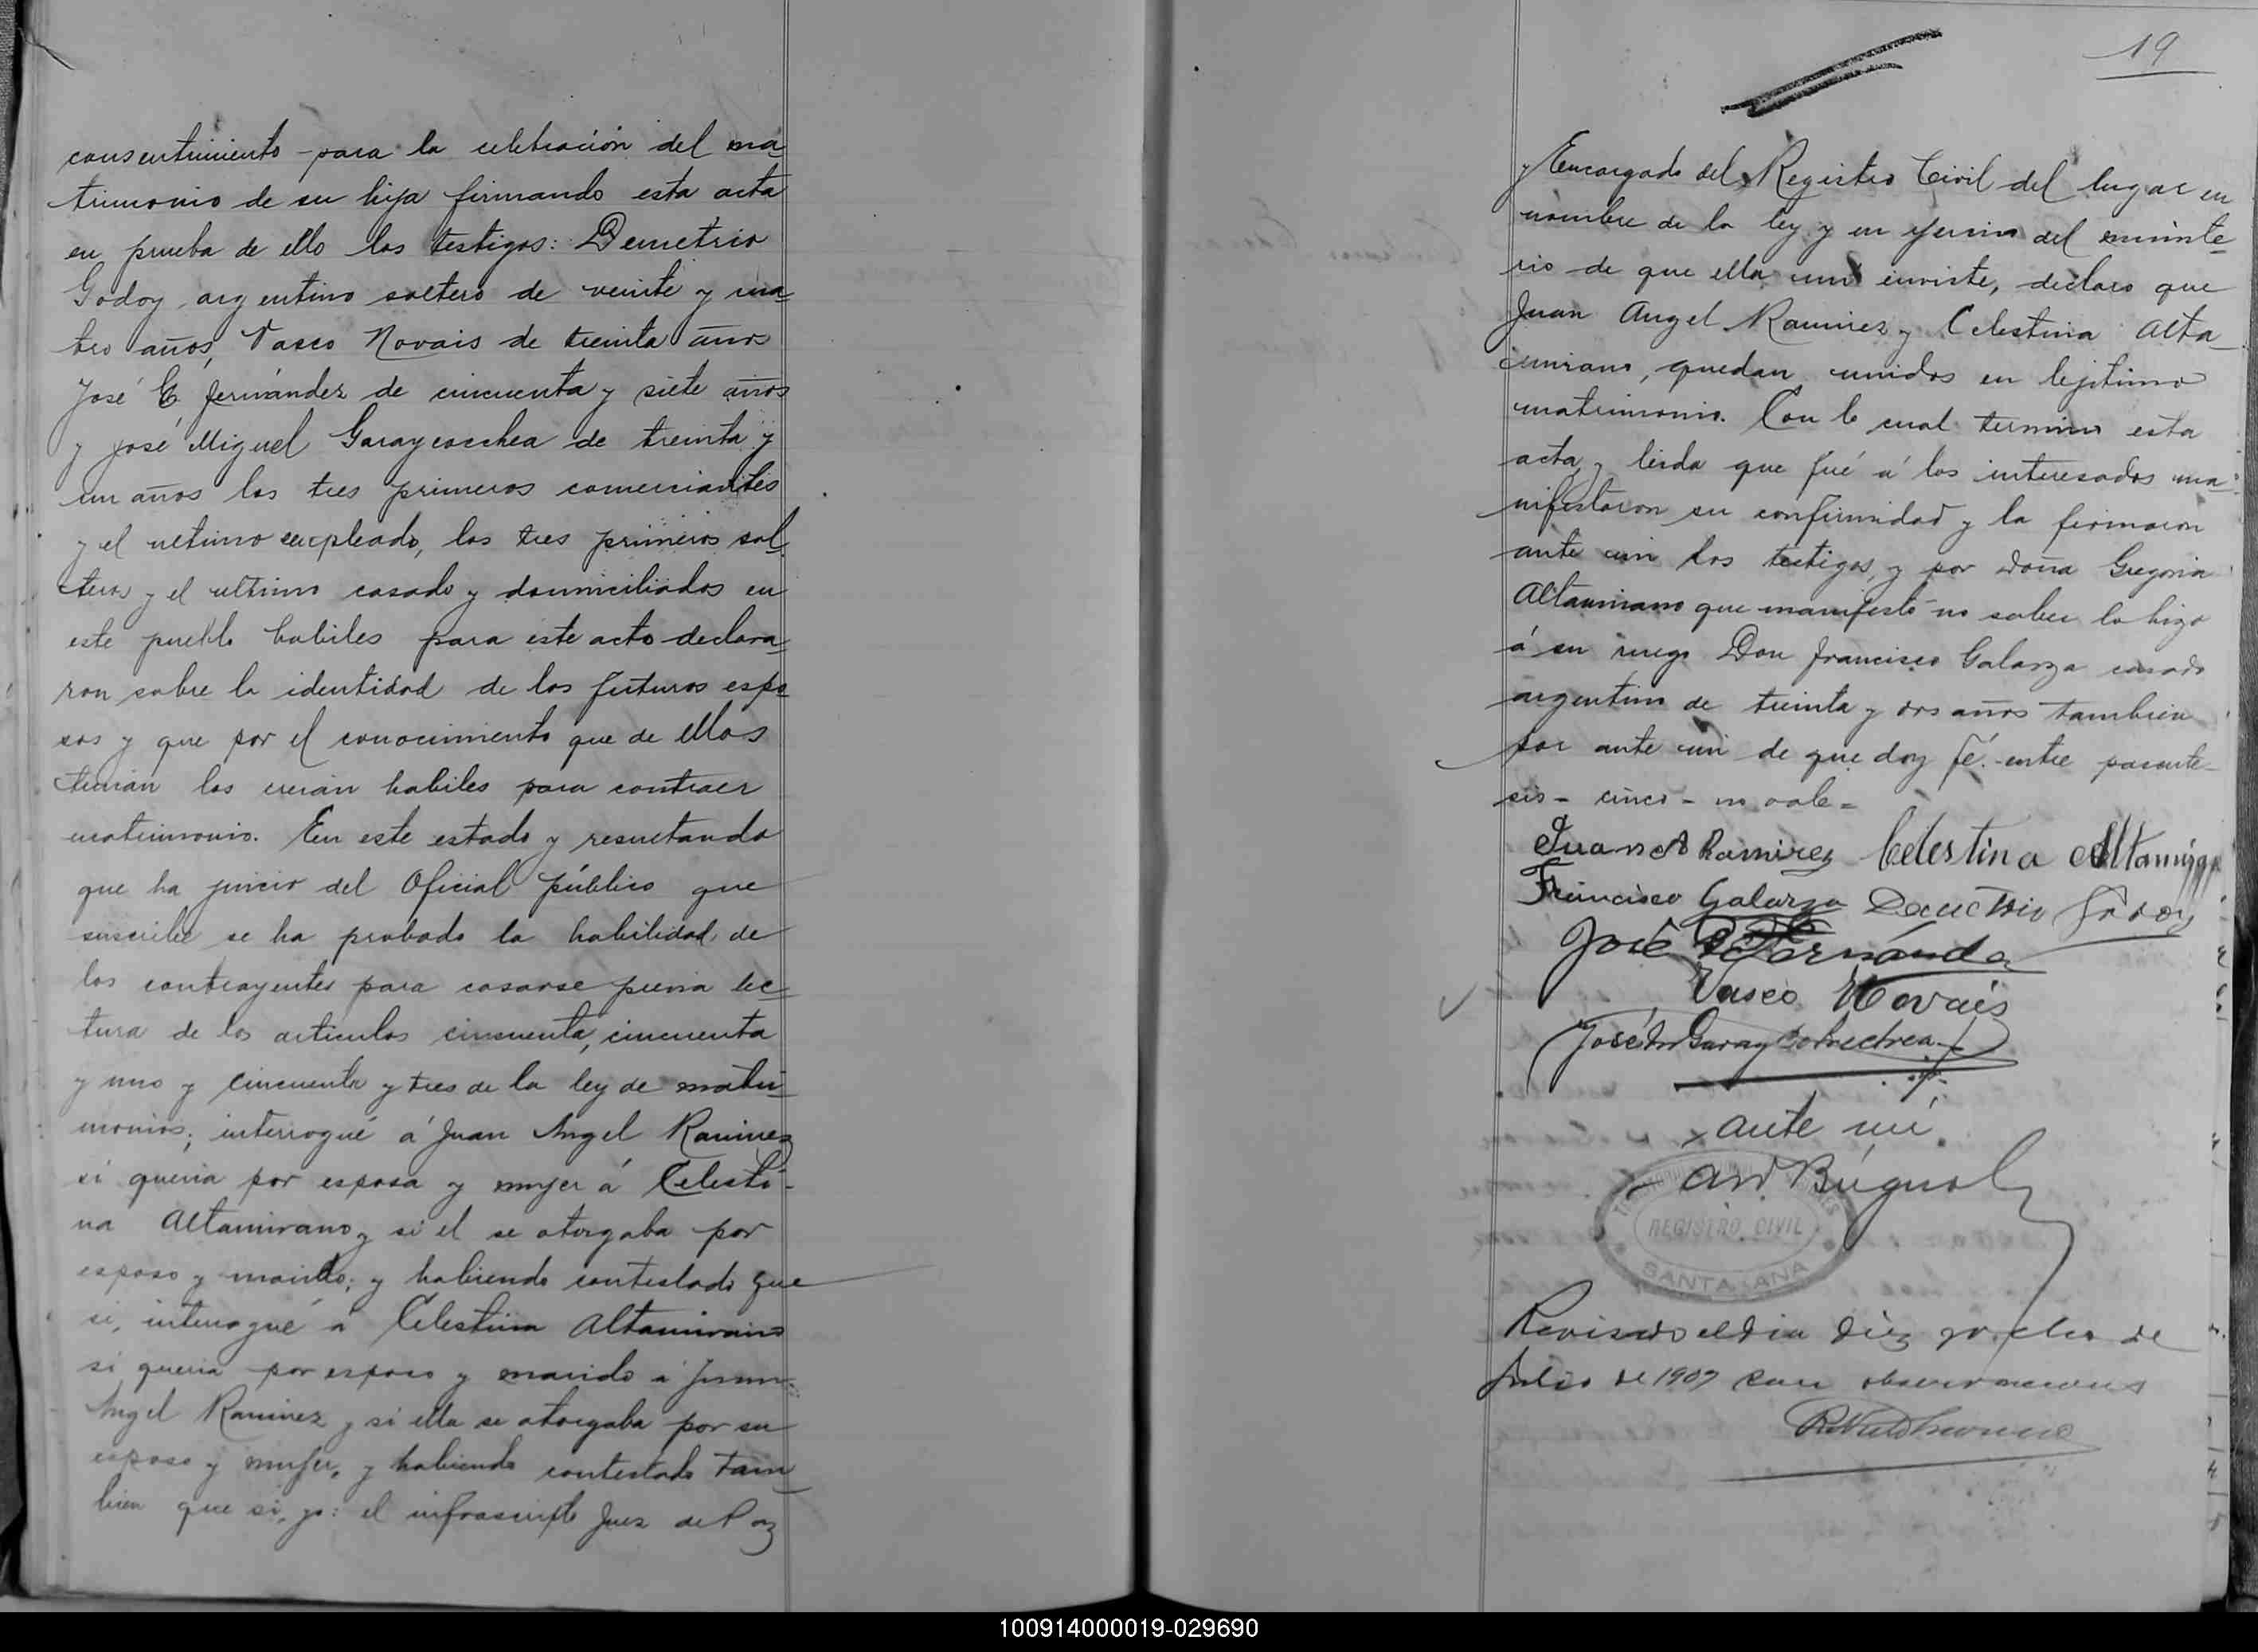 consentimiento para la celebración del ma
trimonio de su hija firmando esta acta
en prueba de ello los testigos: Demetrio
Godoy, argentino soltero de veinte y cua
tro años, Vasco Novais de treinta años
José C Fernández de cincuenta y siete años
y José Miguel Garaycochea de treinta y
un años los tres primeros comerciantes
y el ultimo empleado, los tres primeros sol
teros y el ultimo casado y domiciliados en
este pueblo habiles para este acto declara
ron sobre la identidad de los futuros espo
sos y que por el conocimiento que de ellos
tenian los creian habiles para contraer
matrimonio. En este estado y resultando
que ha juicio del Oficial público que
suscribe se ha probado la habilidad de
los contrayentes para casarse previa lec
tura de los articulos cincuenta, cincuenta
y uno y cincuenta y tres de la ley de matri
monios; interrogué á Juan Angel Ramirez
si queria por esposa y mujer á Celesti-
na Altamirano y si el se otorgaba por
esposo y marido; y habiendo contestado que
si, interrogué á Celestina Altamirano
si queria por esposo y marido á Juan
Angel Ramirez y si ella se otorgaba por su
esposa y mujer, y habiendo contestado tam
bien que si, yo: el infrascripto Juez de Paz
19
y Encargado del Registro Civil del lugar en
nombre de la ley y en ejercicio del ministe
rio de que ella me inviste, declaro que
Juan Angel Ramirez y Celestina Alta
mirano, quedan unidos en lejitimo
matrimonio. Con lo cual termino esta
acta y leida que fué á los interesados ma
nifestaron su conformidad y la firmaron
ante mi los testigos, y por doña Gregoria
Altamirano que manifestó no saber lo hizo
á su ruego Don Francisco Galarza casado
argentino de treinta y dos años tambien
por ante mi de que doy fé. entre parente-
sis - cinco - no vale =
Juan A Ramirez Celestina Altamirano
Francisco Galarza Demetrio Godoy
José C Fernández
Vasco Novais
José M Garaycochea
ante mi
REGISTRO CIVIL
SANTA ANA
Revisado el dia diez y ocho de
Julio de 1907 con observaciones
100914000019-029690